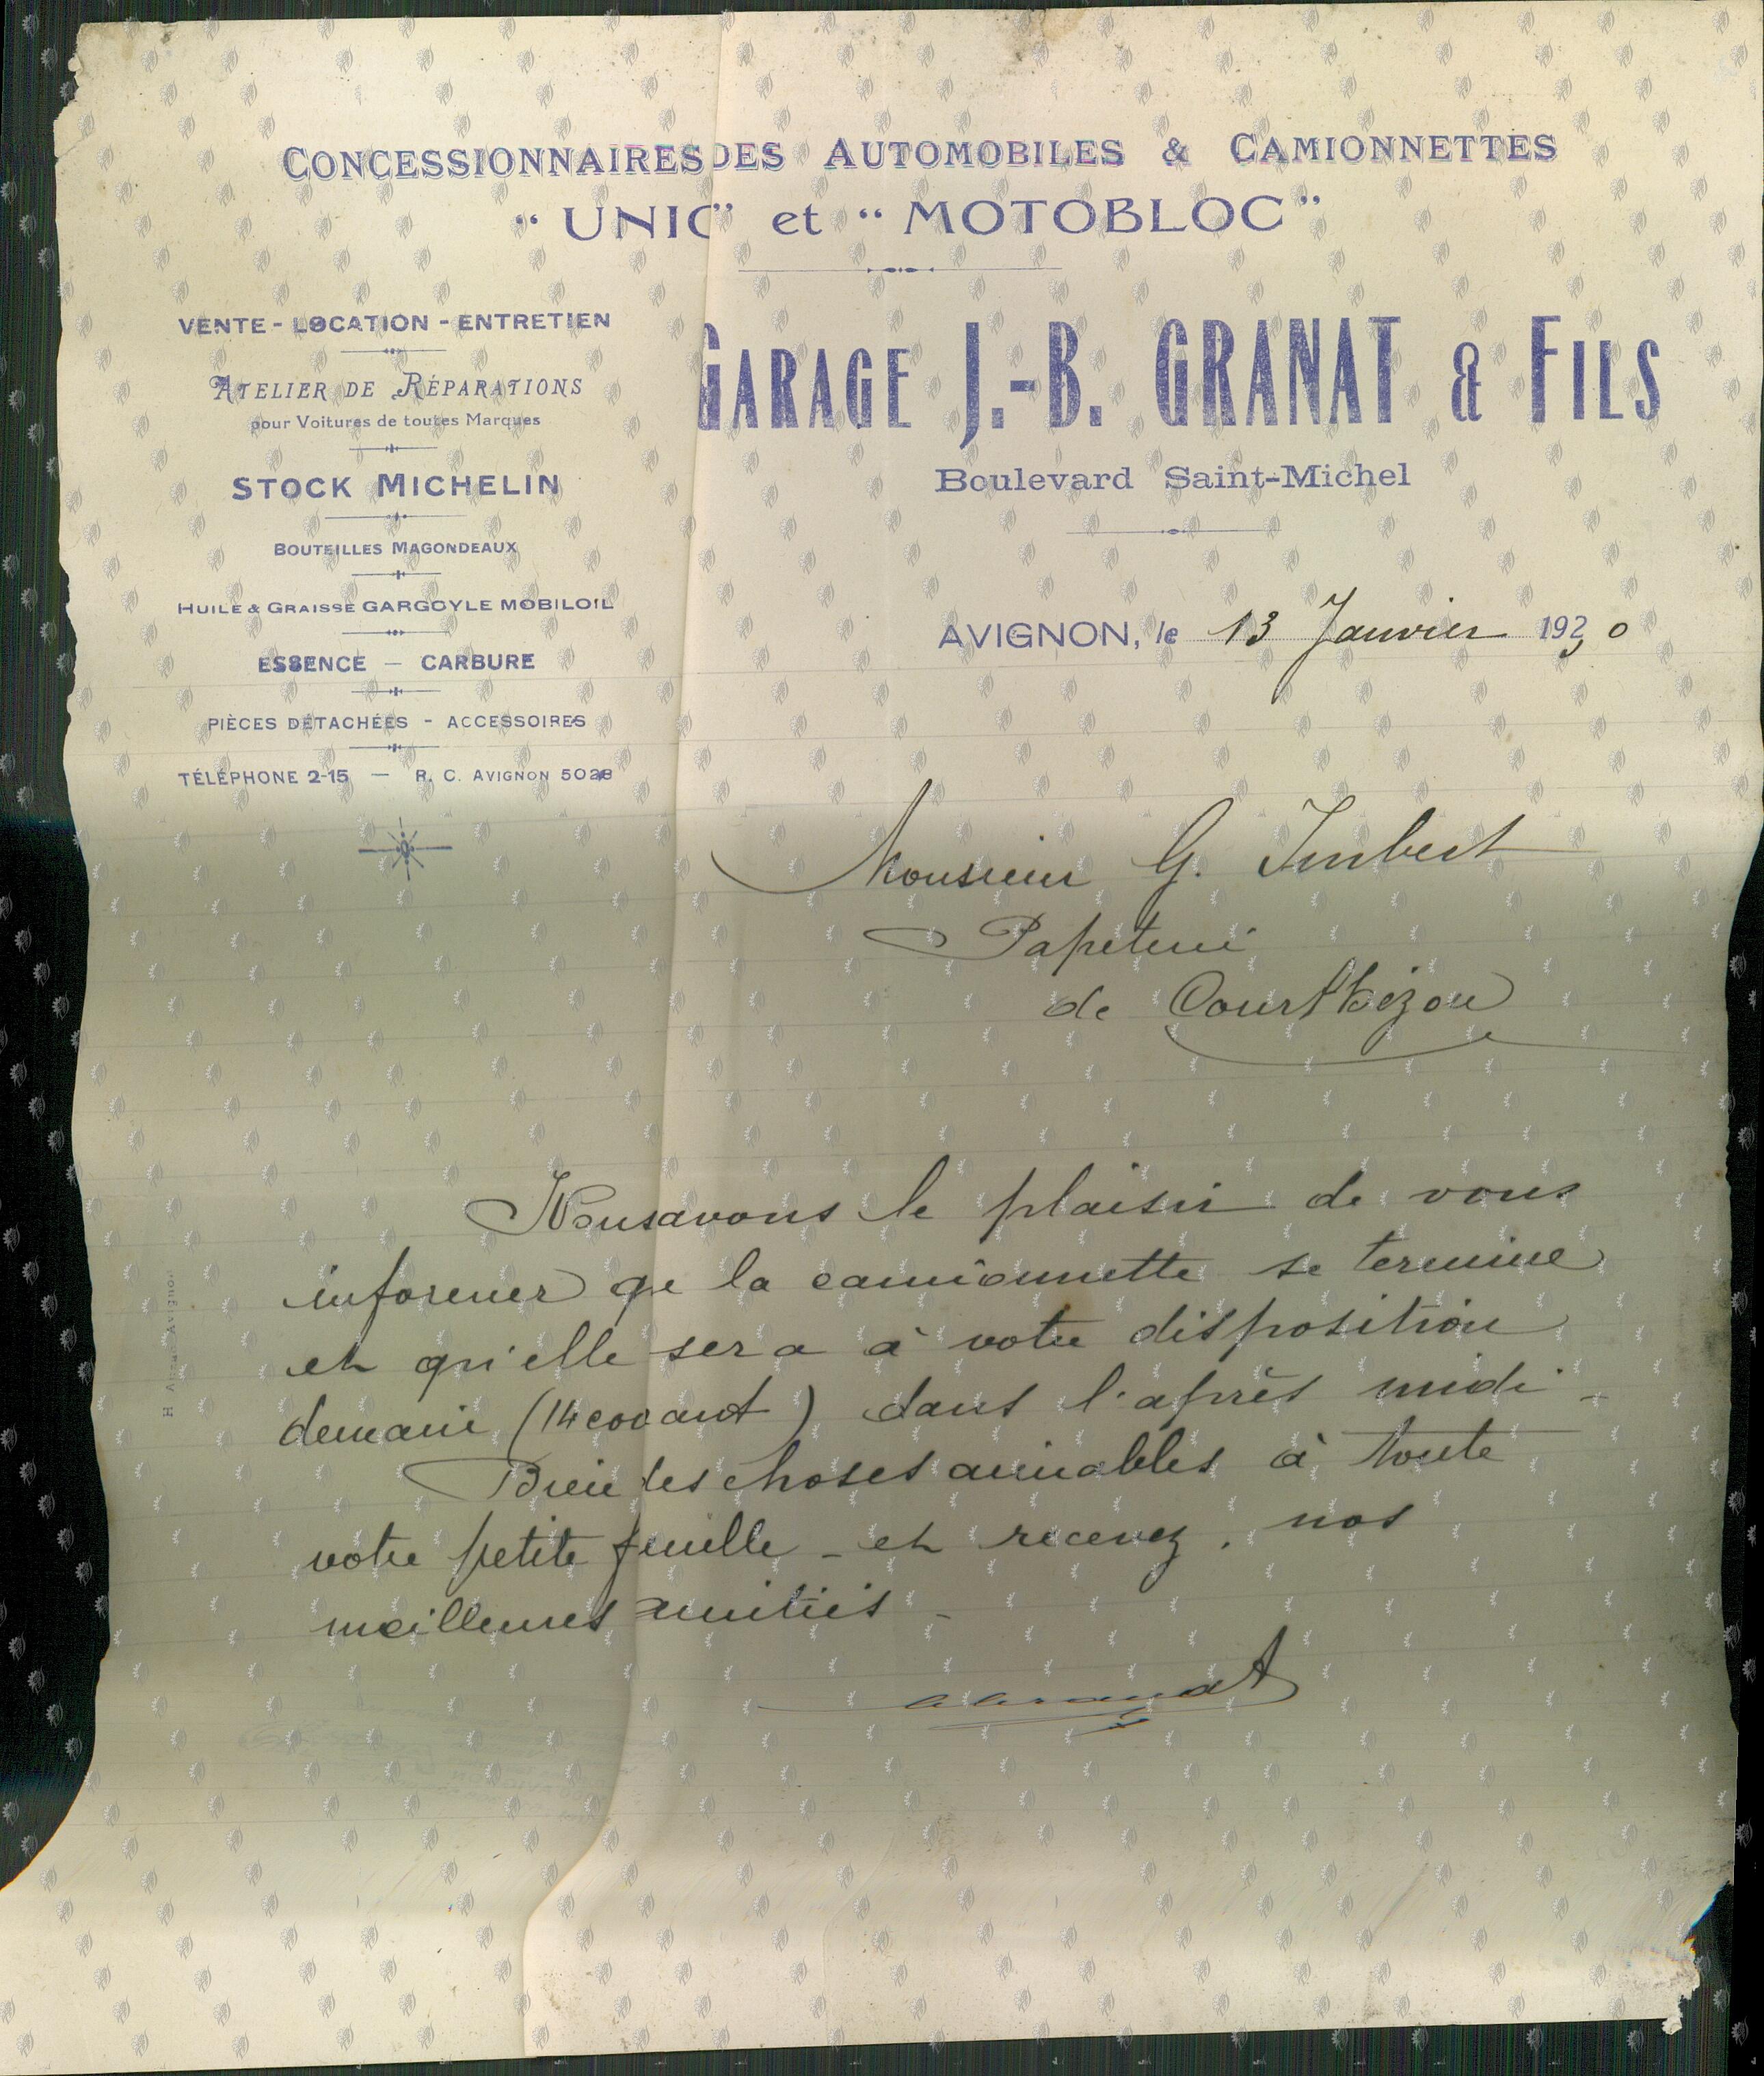 CONCESSIONNAIRES DES AUTOMOBILES & CAMIONNETTES
“ UNIC” et “ MOTOBLOC”
VENTE - LOCATION - ENTRETIEN
ATELIER DE RÉPARATIONS
pour Voitures de toutes Marques
STOCK MICHELIN
BOUTEILLES MAGONDEAUX
HUILE & GRAISSE GARGOYLE MOBILOIL
ESSENCE — CARBURE
PIÈCES DÉTACHÉES - ACCESSOIRES
TÉLÉPHONE 2-15 — R. C. AVIGNON 5028
GARAGE J.-B. GRANAT & FILS
Boulevard Saint-Michel
AVIGNON, le 13 Janvier 1930
Monsieur G. Imbert
Papeterie
de Courthézon
Nous avons le plaisir de vous
informer qe la camionnette se termine
et qu'elle sera à votre disposition
demain (14 courant) dans l'après midi -
Bien des choses aimables à toute
votre petite famille - et recevez. nos
meilleures amitiés -
Granat
Avignon